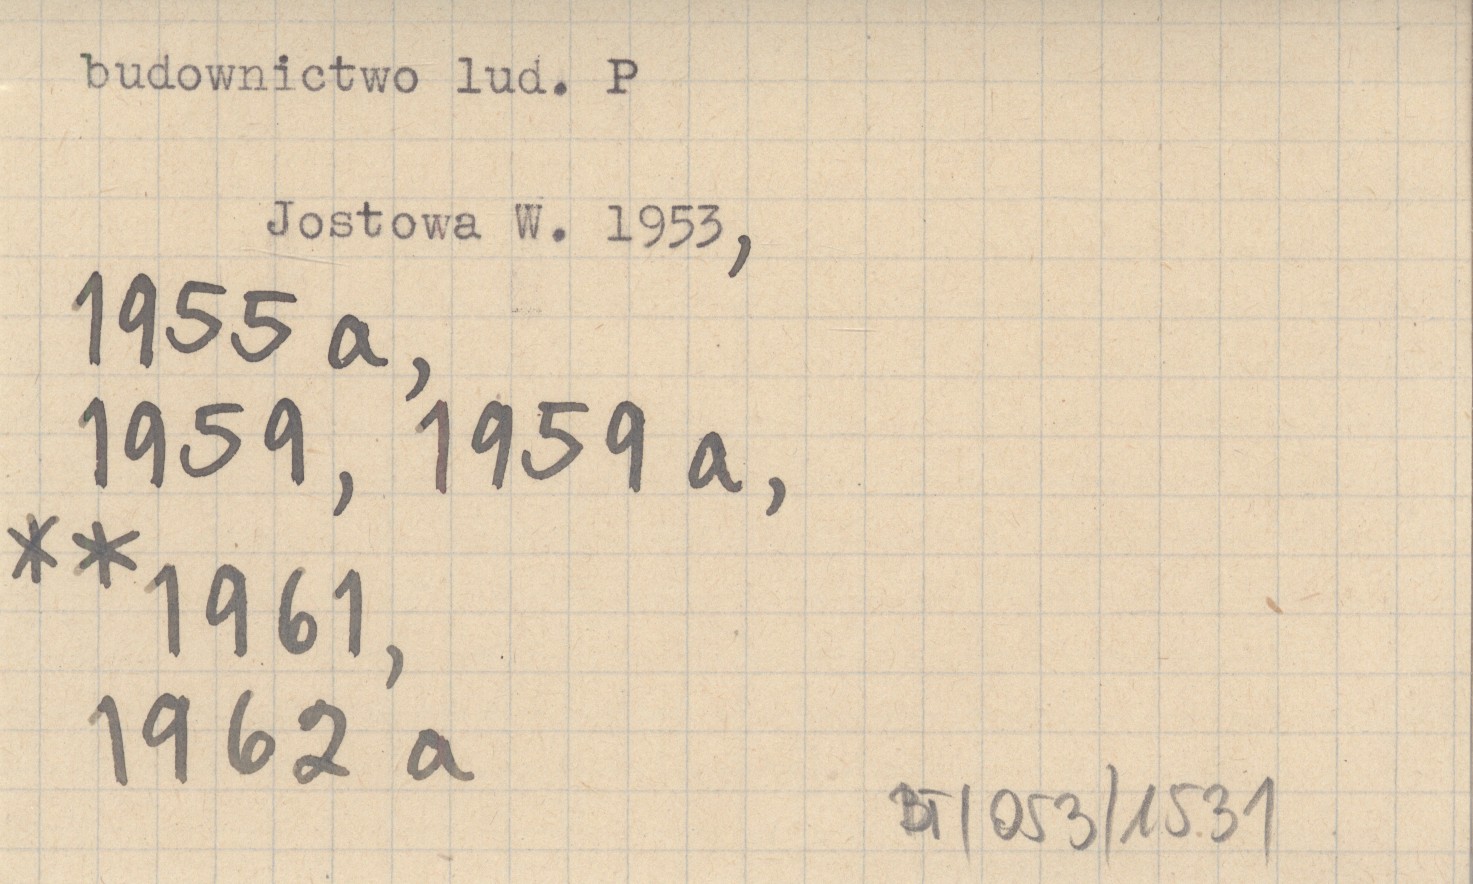 budownictwo lud. P
Jostowa W. 1953,
1955 a,
1959, 1959 a,
**1961,
1962 a
BT/053/1531